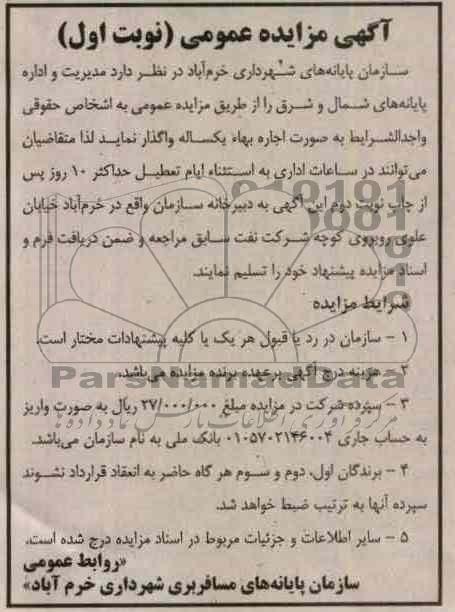 آگهی مزایده عمومی (نوبت اول)
سازمان پایانه‌های شهرداری خرم‌آباد در نظر دارد مدیریت و اداره
پایانه‌های شمال و شرق را از طریق مزایده عمومی به اشخاص حقوقی
واجدالشرایط به صورت اجاره بهاء یکساله واگذار نماید لذا متقاضیان
می‌توانند در ساعات اداری به استثناء ایام تعطیل حداکثر ۱۰ روز پس
از چاپ نوبت دوم این آگهی به دبیرخانه سازمان واقع در خرم‌آباد خیابان
علوی روبروی کوچه شرکت نفت سابق مراجعه و ضمن دریافت فرم و
اسناد مزایده پیشنهاد خود را تسلیم نمایند.
شرایط مزایده
۱ – سازمان در رد یا قبول هر یک یا کلیه پیشنهادات مختار است.
۲ – هزینه درج آگهی برعهده برنده مزایده می‌باشد.
ParsNamadData
۳ – سپرده شرکت در مزایده مبلغ ۲۷/۰۰۰/۰۰۰ ریال به صورت واریز
به حساب جاری ۰۱۰۵۷۰۲۱۴۶۰۰۴ بانک ملی به نام سازمان می‌باشد.
۴ – برندگان اول، دوم و سوم هر گاه حاضر به انعقاد قرارداد نشوند
سپرده آنها به ترتیب ضبط خواهد شد.
۵ – سایر اطلاعات و جزئیات مربوط در اسناد مزایده درج شده است.
«روابط عمومی
سازمان پایانه‌های مسافربری شهرداری خرم آباد»